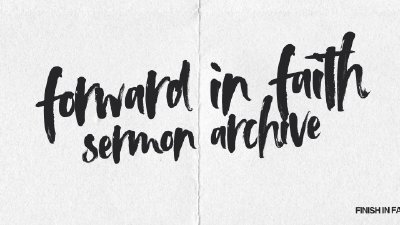 forward in faith
sermon archive
FINISH IN